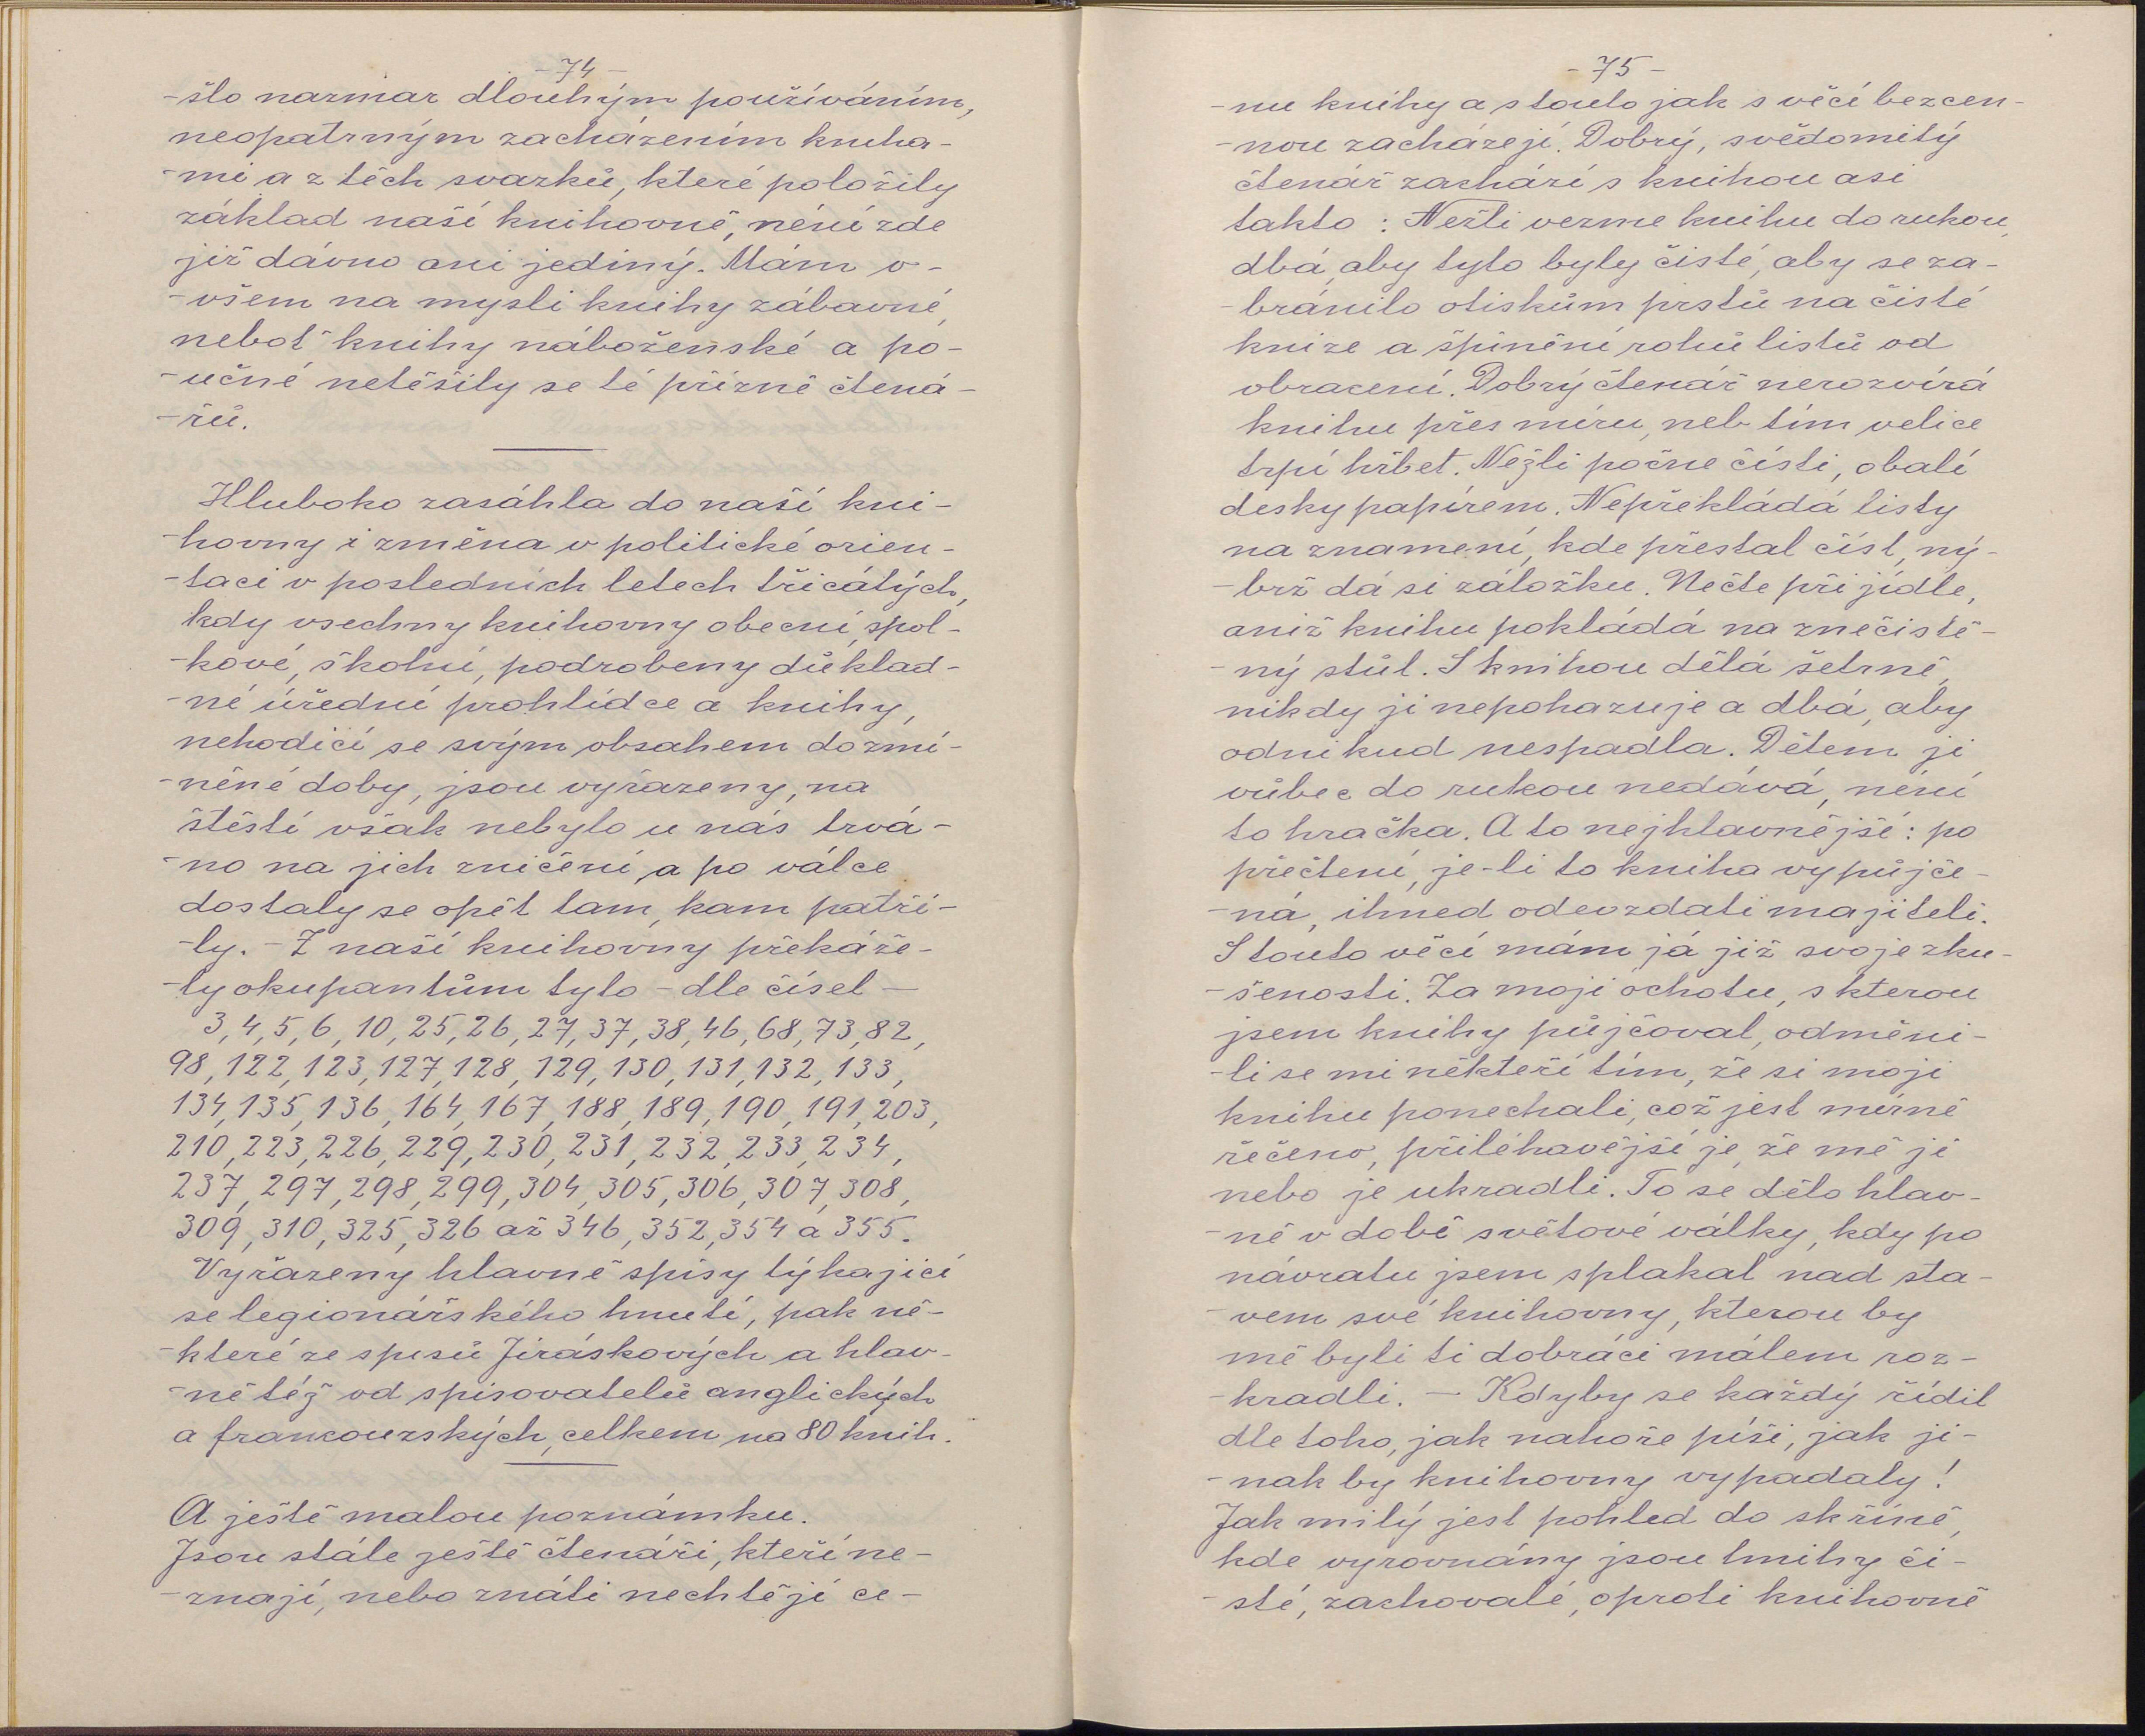 - 74 -
-šlo nazmar dlouhým používáním,
neopatrným zacházením kniha-
-mi a z těch svazků, které položily
základ naší knihovně, néní zde
již dávno ani jediný. Mám o-
-všem na mysli knihy zábavné,
neboť knihy náboženské a po-
-učné netěšily se té přízně čtená-
-řů.
Hluboko zasáhla do naší kni-
-hovny i změna v politické orien-
-taci v posledních letech třicátých,
kdy vsechny knihovny obecní, spol-
-kové, školní, podrobeny důklad-
-né úřední prohlídce a knihy,
nehodící se svým obsahem do zmí-
-něné doby, jsou vyřazeny, na
štěstí však nebylo u nás trvá-
-no na jich zničení, a po válce
dostaly se opět tam, kam patři-
-ly. - Z naší knihovny překáže-
-ly okupantům tyto - dle čísel -
3, 4, 5, 6, 10, 25, 26, 27, 37, 38, 46, 68, 73, 82,
98, 122, 123, 127, 128, 129, 130, 131, 132, 133,
134, 135, 136, 164, 167, 188, 189, 190, 191, 203,
210, 223, 226, 229, 230, 231, 232, 233, 234,
237, 297, 298, 299, 304, 305, 306, 307, 308,
309, 310, 325, 326 až 346, 352, 354 a 355.
Vyřazeny hlavně spisy týkající
se legionářského hnutí, pak ně-
-které ze spisů Jiráskových a hlav-
-ně též od spisovatelů anglických
a francouzských, celkem na 80 knih.
A ještě malou poznámku.
Jsou stále ještě čtenáři, kteří ne-
-znají, nebo znáti nechtějí ce-
- 75 -
-nu knihy a s touto jak s věcí bezcen-
-nou zacházejí. Dobrý, svědomitý
čtenář zachází s knihou asi
takto: Nežli vezme knihu do rukou,
dbá, aby tyto byly čisté, aby se za-
-bránilo otiskům prstů na čisté
knize a špinění rohů listů od
obracení. Dobrý čtenář nerozvírá
knihu přes míru, neb tím velice
trpí hřbet. Nežli počne čísti, obalí
desky papírem. Nepřekládá listy
na znamení, kde přestal číst, ný-
-brž dá si záložku. Nečte při jídle,
aniž knihu pokládá na znečistě-
-ný stůl. S knihou dělá šetrně,
nikdy ji nepohazuje a dbá, aby
odnikud nespadla. Dětem ji
vůbec do rukou nedává, néní
to hračka. A to nejhlavnější: po
přečtení, je-li to kniha vypůjče-
-ná, ihned odevzdati majiteli.
S touto věcí mám já již svoje zku-
-šenosti. Za moji ochotu, s kterou
jsem knihy půjčoval, odměni-
-li se mi někteří tím, že si moji
knihu ponechali, což jest mírně
řečeno, přiléhavější je, že mě ji
nebo je ukradli. To se dělo hlav-
-ně v době světové války, kdy po
návratu jsem splakal nad sta-
-vem své knihovny, kterou by
mě byli ti dobráci málem roz-
-kradli. - Kdyby se každý řídil
dle toho, jak nahoře píši, jak ji-
-nak by knihovny vypadaly!
Jak milý jest pohled do skříně,
kde vyrovnány jsou knihy či-
-sté, zachovalé, oproti knihovně